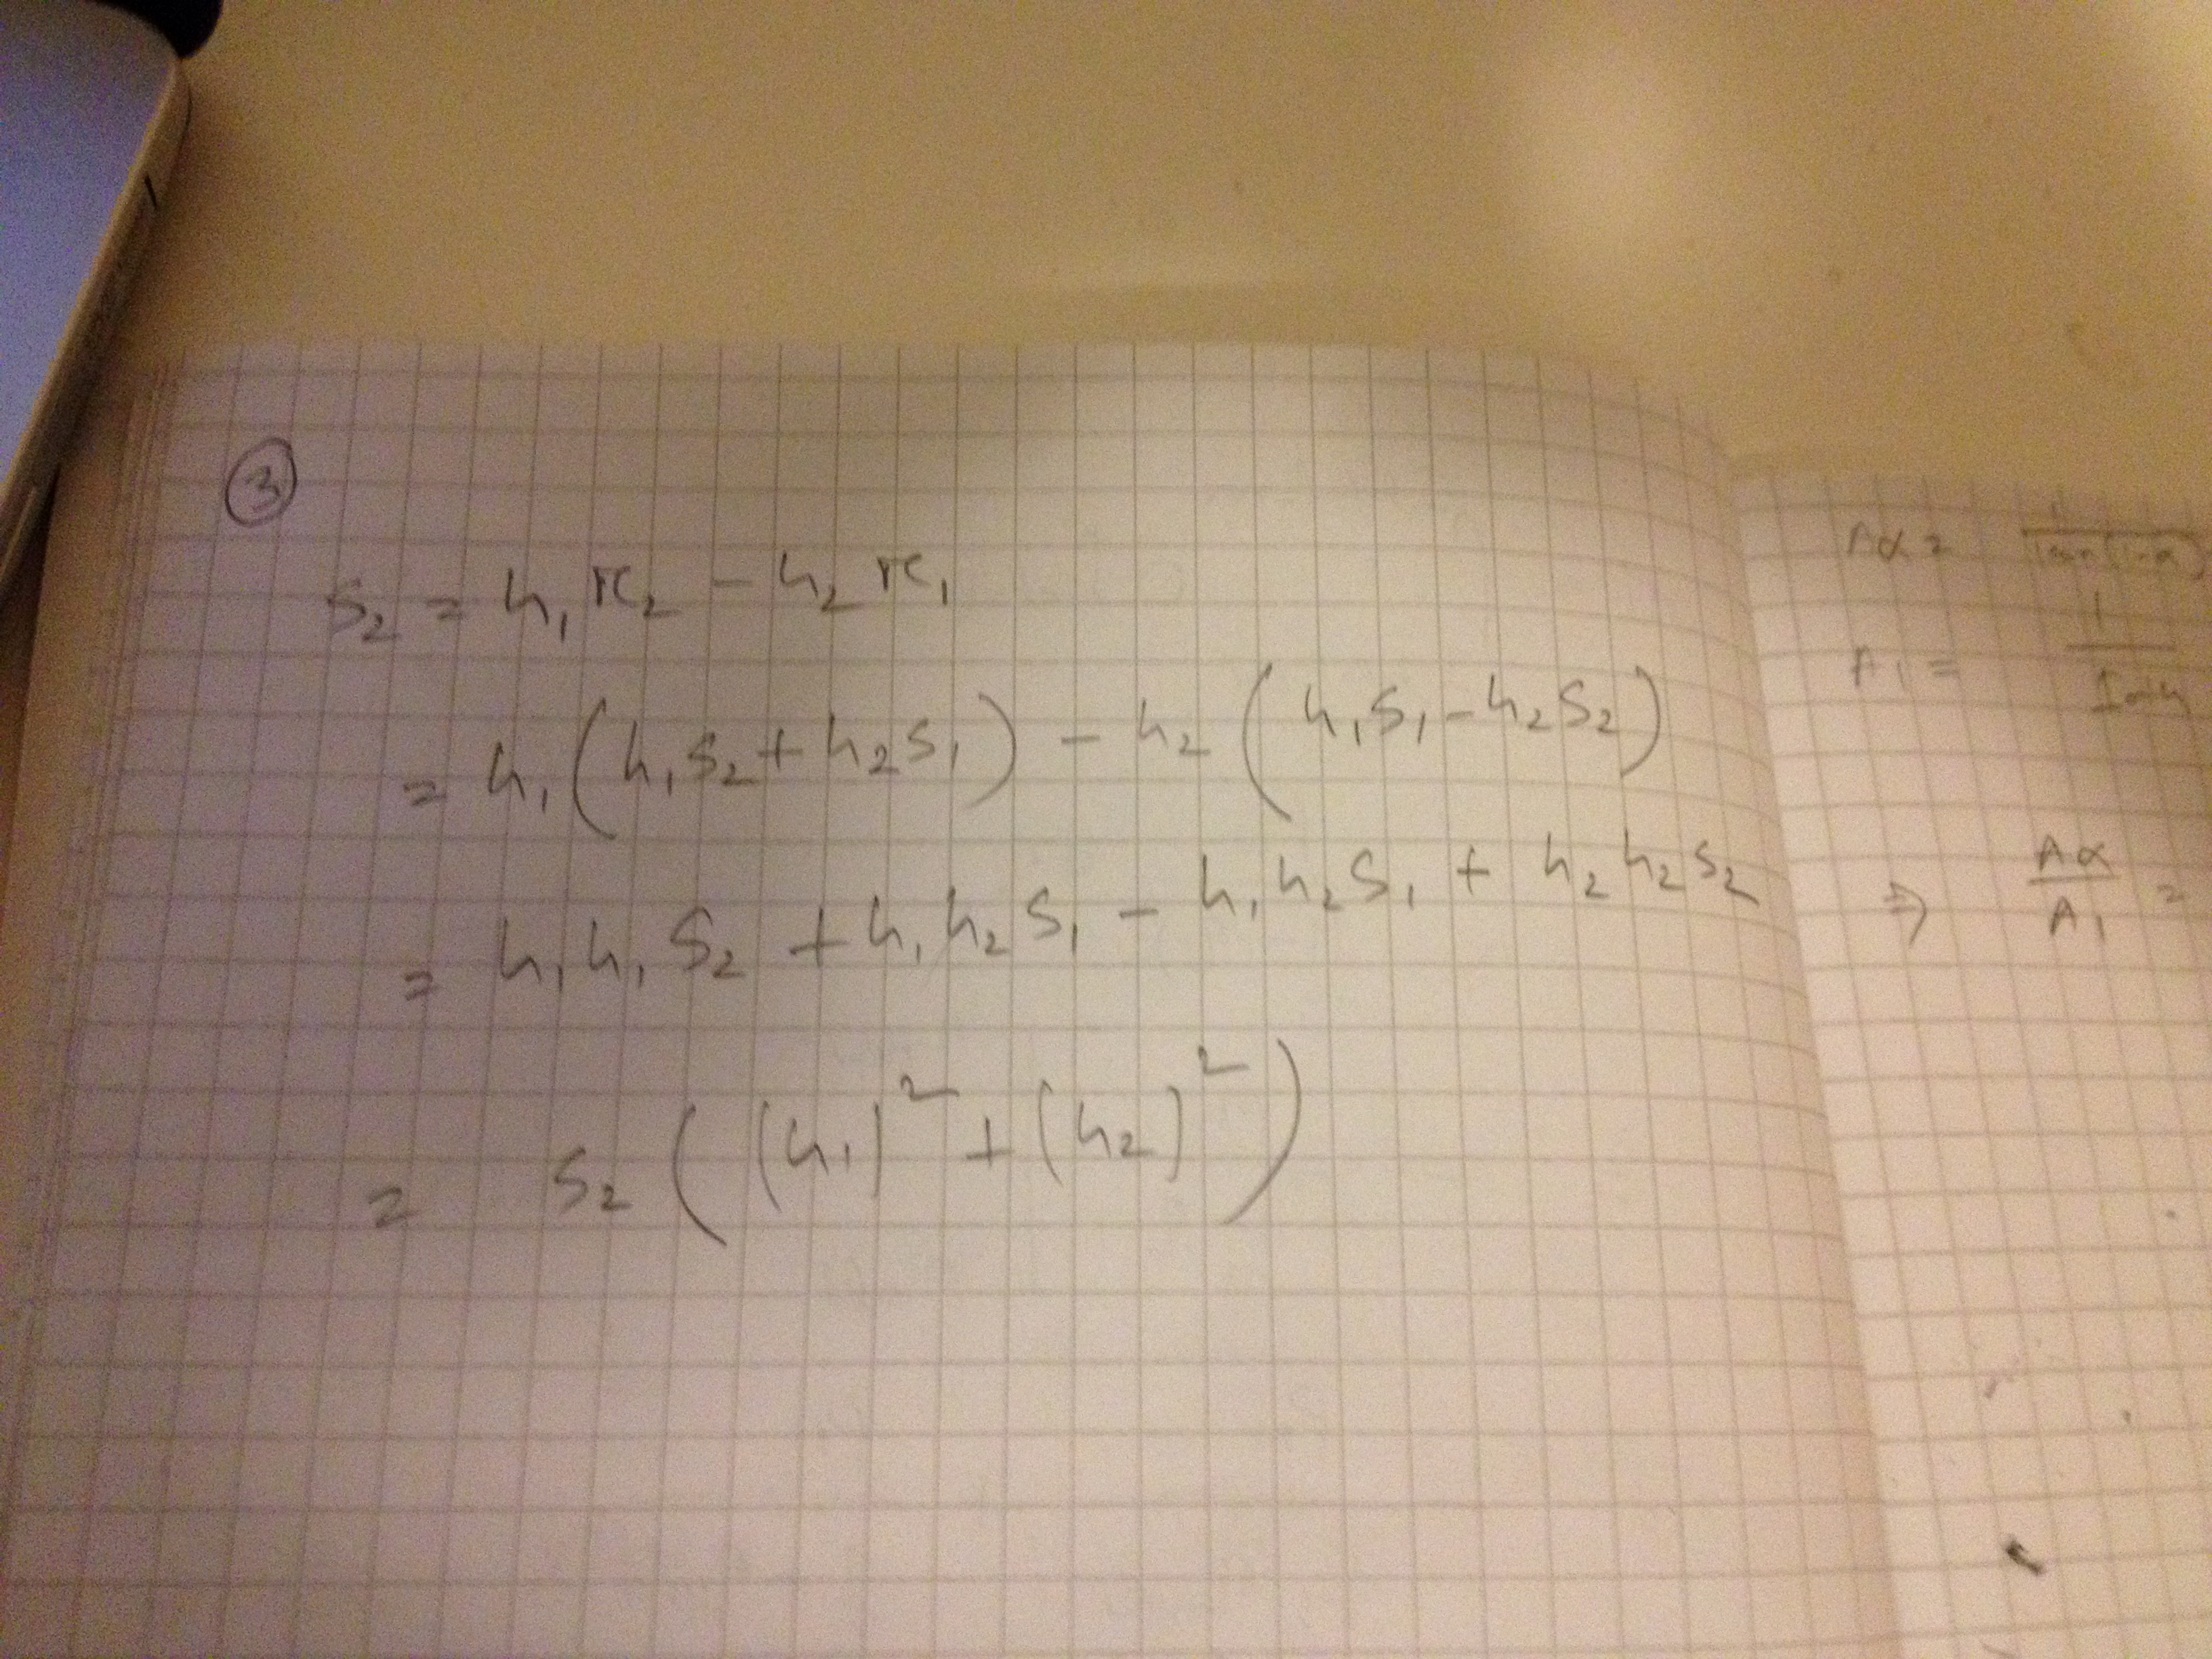 ③
S₂ = h₁r₂ - h₂r₁
= h₁(h₁S₂ + h₂S₁) - h₂(h₁S₁ - h₂S₂)
= h₁h₁S₂ + h₁h₂S₁ - h₁h₂S₁ + h₂h₂S₂
= S₂((h₁)² + (h₂)²)
A₁ =
⇒ Aα/A₁ =